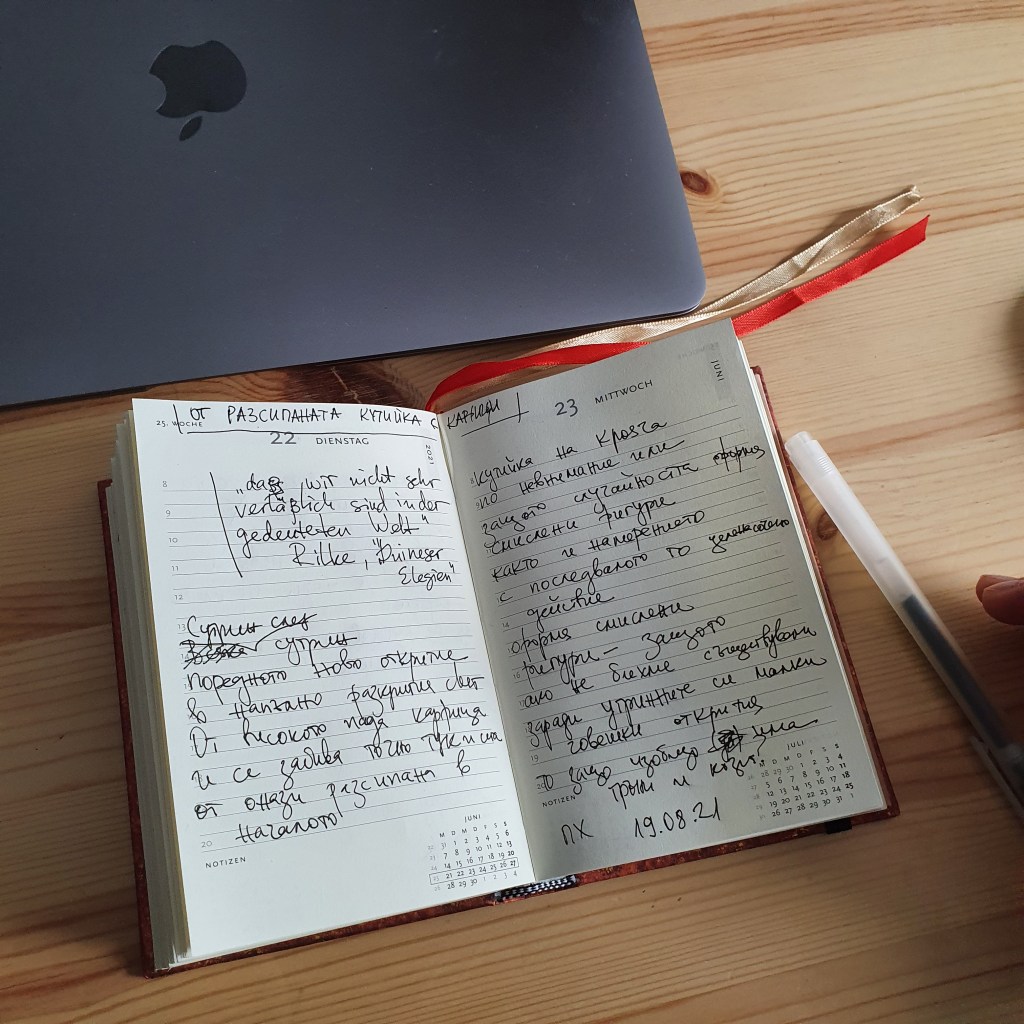 ОТ РАЗСИПАНАТА КУТИЙКА С КАРФИЦИ
25. WOCHE
22 DIENSTAG
2021
8
9
10
11
12
13
20
"daß wir nicht sehr
verläßlich sind in der
gedeuteten Welt"
Rilke, "Duineser
Elegien"
Сутрин след
сутрин
поредното ново откритие
в разкрития свят
От високото пада карфица
и се забива точно тук и сега
от онази разсипана в
началото
NOTIZEN
JUNI
M D M D F S S
31 1 2 3 4 5 6
7 8 9 10 11 12 13
14 15 16 17 18 19 20
21 22 23 24 25 26 27
28 29 30 1 2 3 4
JUNI
23 MITTWOCH
кутийка на
по невнимание или
защото случайността оформя
смислени фигури
както и намерението
с последвалото го целенасочено
действие
оформя смислени
фигури – защото
ако не бихме съществували
заради утринните си малки
човешки открития
то защо изобщо има
трън и
14
16
19
20
NOTIZEN
ПХ 19.08.21
JULI
M D M D F S S
28 29 30 1 2 3 4
5 6 7 8 9 10 11
12 13 14 15 16 17 18
19 20 21 22 23 24 25
26 27 28 29 30 31 1